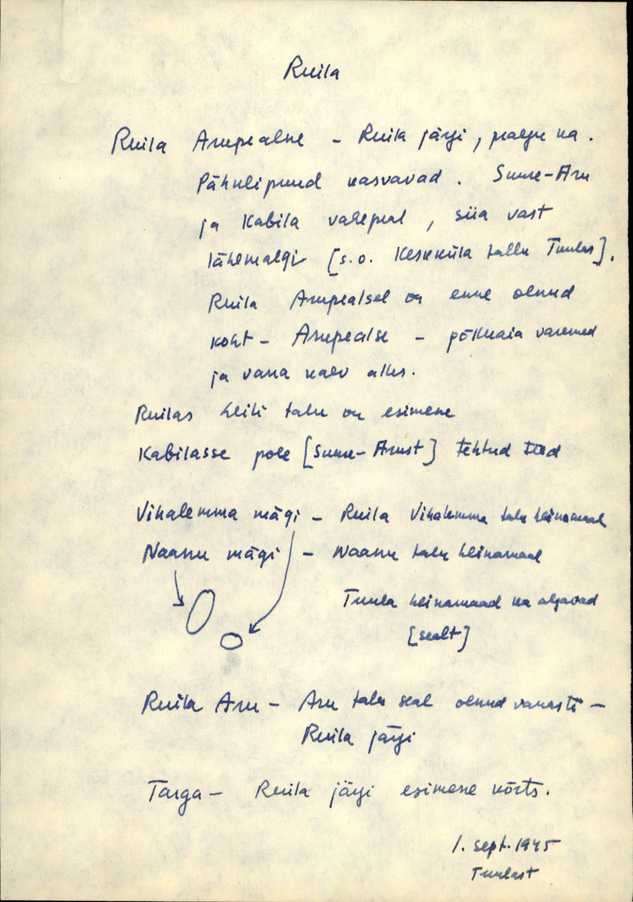 Ruila
Ruila Arupealne – Ruila järgi, palju ka.
Pähklipuud kasvavad. Suure-Aru
ja Kabila vahepeal, siia vast
lähemalgi [s.o. Keskküla tallu Tuulas].
Ruila Arupealsel on enne olnud
koht – Arupealse – põllumaia varemed
ja vana kaev alles.
Ruilas talu on esimene
Kabilasse pole [Suure-Arust] tehtud teed
Vihalemma mägi – Ruila Vihalemma talu heinamaal
Naanu mägi – Naanu talu heinamaal
Tuula heinamaad ka algavad
[sealt]
Ruila Aru – Aru talu seal olnud vanasti –
Ruila järgi
Targa – Ruila järgi esimene kõrts.
1. sept. 1945
Tuulast